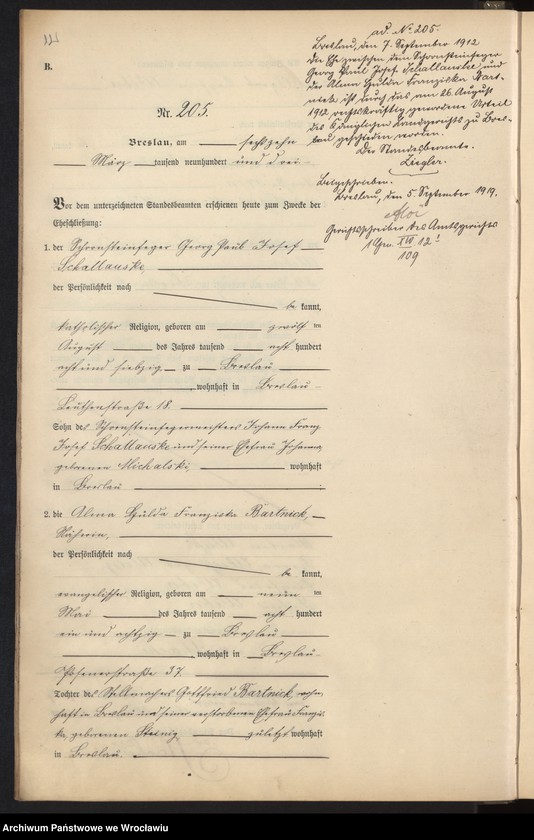 121
B.
ad. No. 205.
Breslau, den 7. September 1912
Die Ehe zwischen dem Schornsteinfeger
Georg Paul Josef Schallauske und
der Alma Hulda Franziska Bart-
nick ist durch das am 26. August
1912 rechtskräftig gewordene Urteil
des Königlichen Landgerichts zu Bres-
lau geschieden worden.
Der Standesbeamte.
Ziegler.
Breslau, den 5. September 1919.
Gerichtsschreiber des Amtsgerichts
109
Nr. 205.
Breslau, am sechzehn
März tausend neunhundert und drei
Vor dem unterzeichneten Standesbeamten erschienen heute zum Zwecke der
Eheschließung:
1. der Schornsteinfeger Georg Paul Josef
Schallauske,
der Persönlichkeit nach
be kannt,
katholischer Religion, geboren am zwölf ten
August des Jahres tausend acht hundert
acht und siebzig zu Breslau
, wohnhaft in Breslau
Leuthenstraße 18.
Sohn des Schornsteinfegermeisters Johann Franz
Josef Schallauske und seiner Ehefrau Johanna
geborenen Michalski, wohnhaft
in Breslau
2. die Alma Hulda Franziska Bartnick,
Näherin,
der Persönlichkeit nach
be kannt,
evangelischer Religion, geboren am neun ten
Mai des Jahres tausend acht hundert
ein und achtzig zu Breslau
, wohnhaft in Breslau
Posenerstraße 37.
Tochter des Stellmachers Gottfried Bartnick, wohn-
haft in Breslau und seiner verstorbenen Ehefrau Franzis-
ka, geborenen zuletzt wohnhaft
in Breslau.
Archiwum Państwowe we Wrocławiu